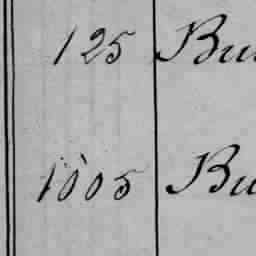 125 Bu
1005 Bu